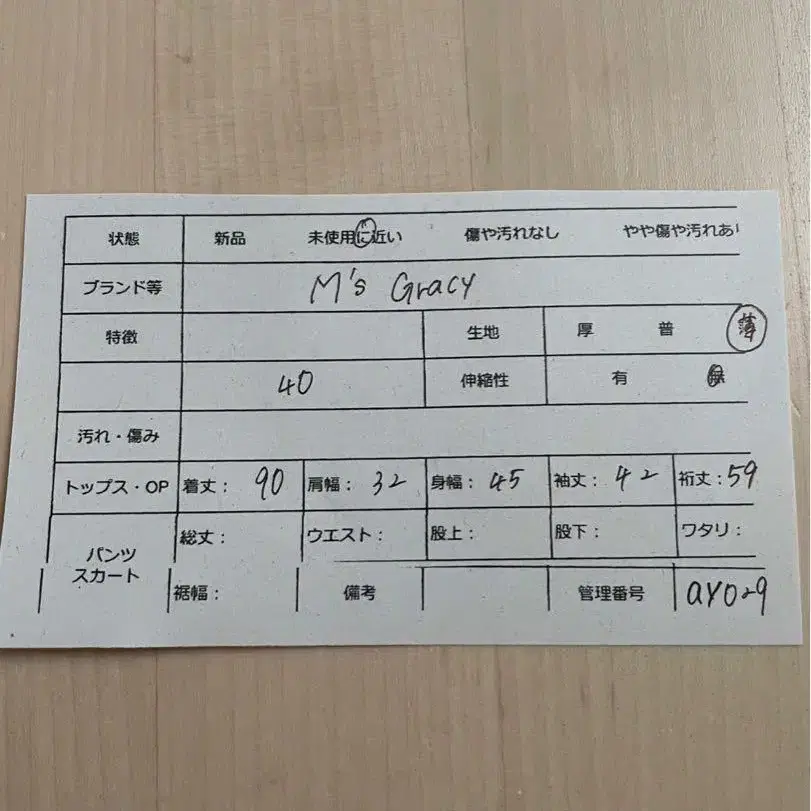 状態 新品 未使用に近い 傷や汚れなし やや傷や汚れあ
ブランド等 M's Gracy
特徴 生地 厚 普 薄
40 伸縮性 有 無
汚れ・傷み
トップス・OP 着丈: 90 肩幅: 32 身幅: 45 袖丈: 42 裄丈: 59
パンツ 総丈: ウエスト: 股上: 股下: ワタリ:
スカート 裾幅: 備考 管理番号